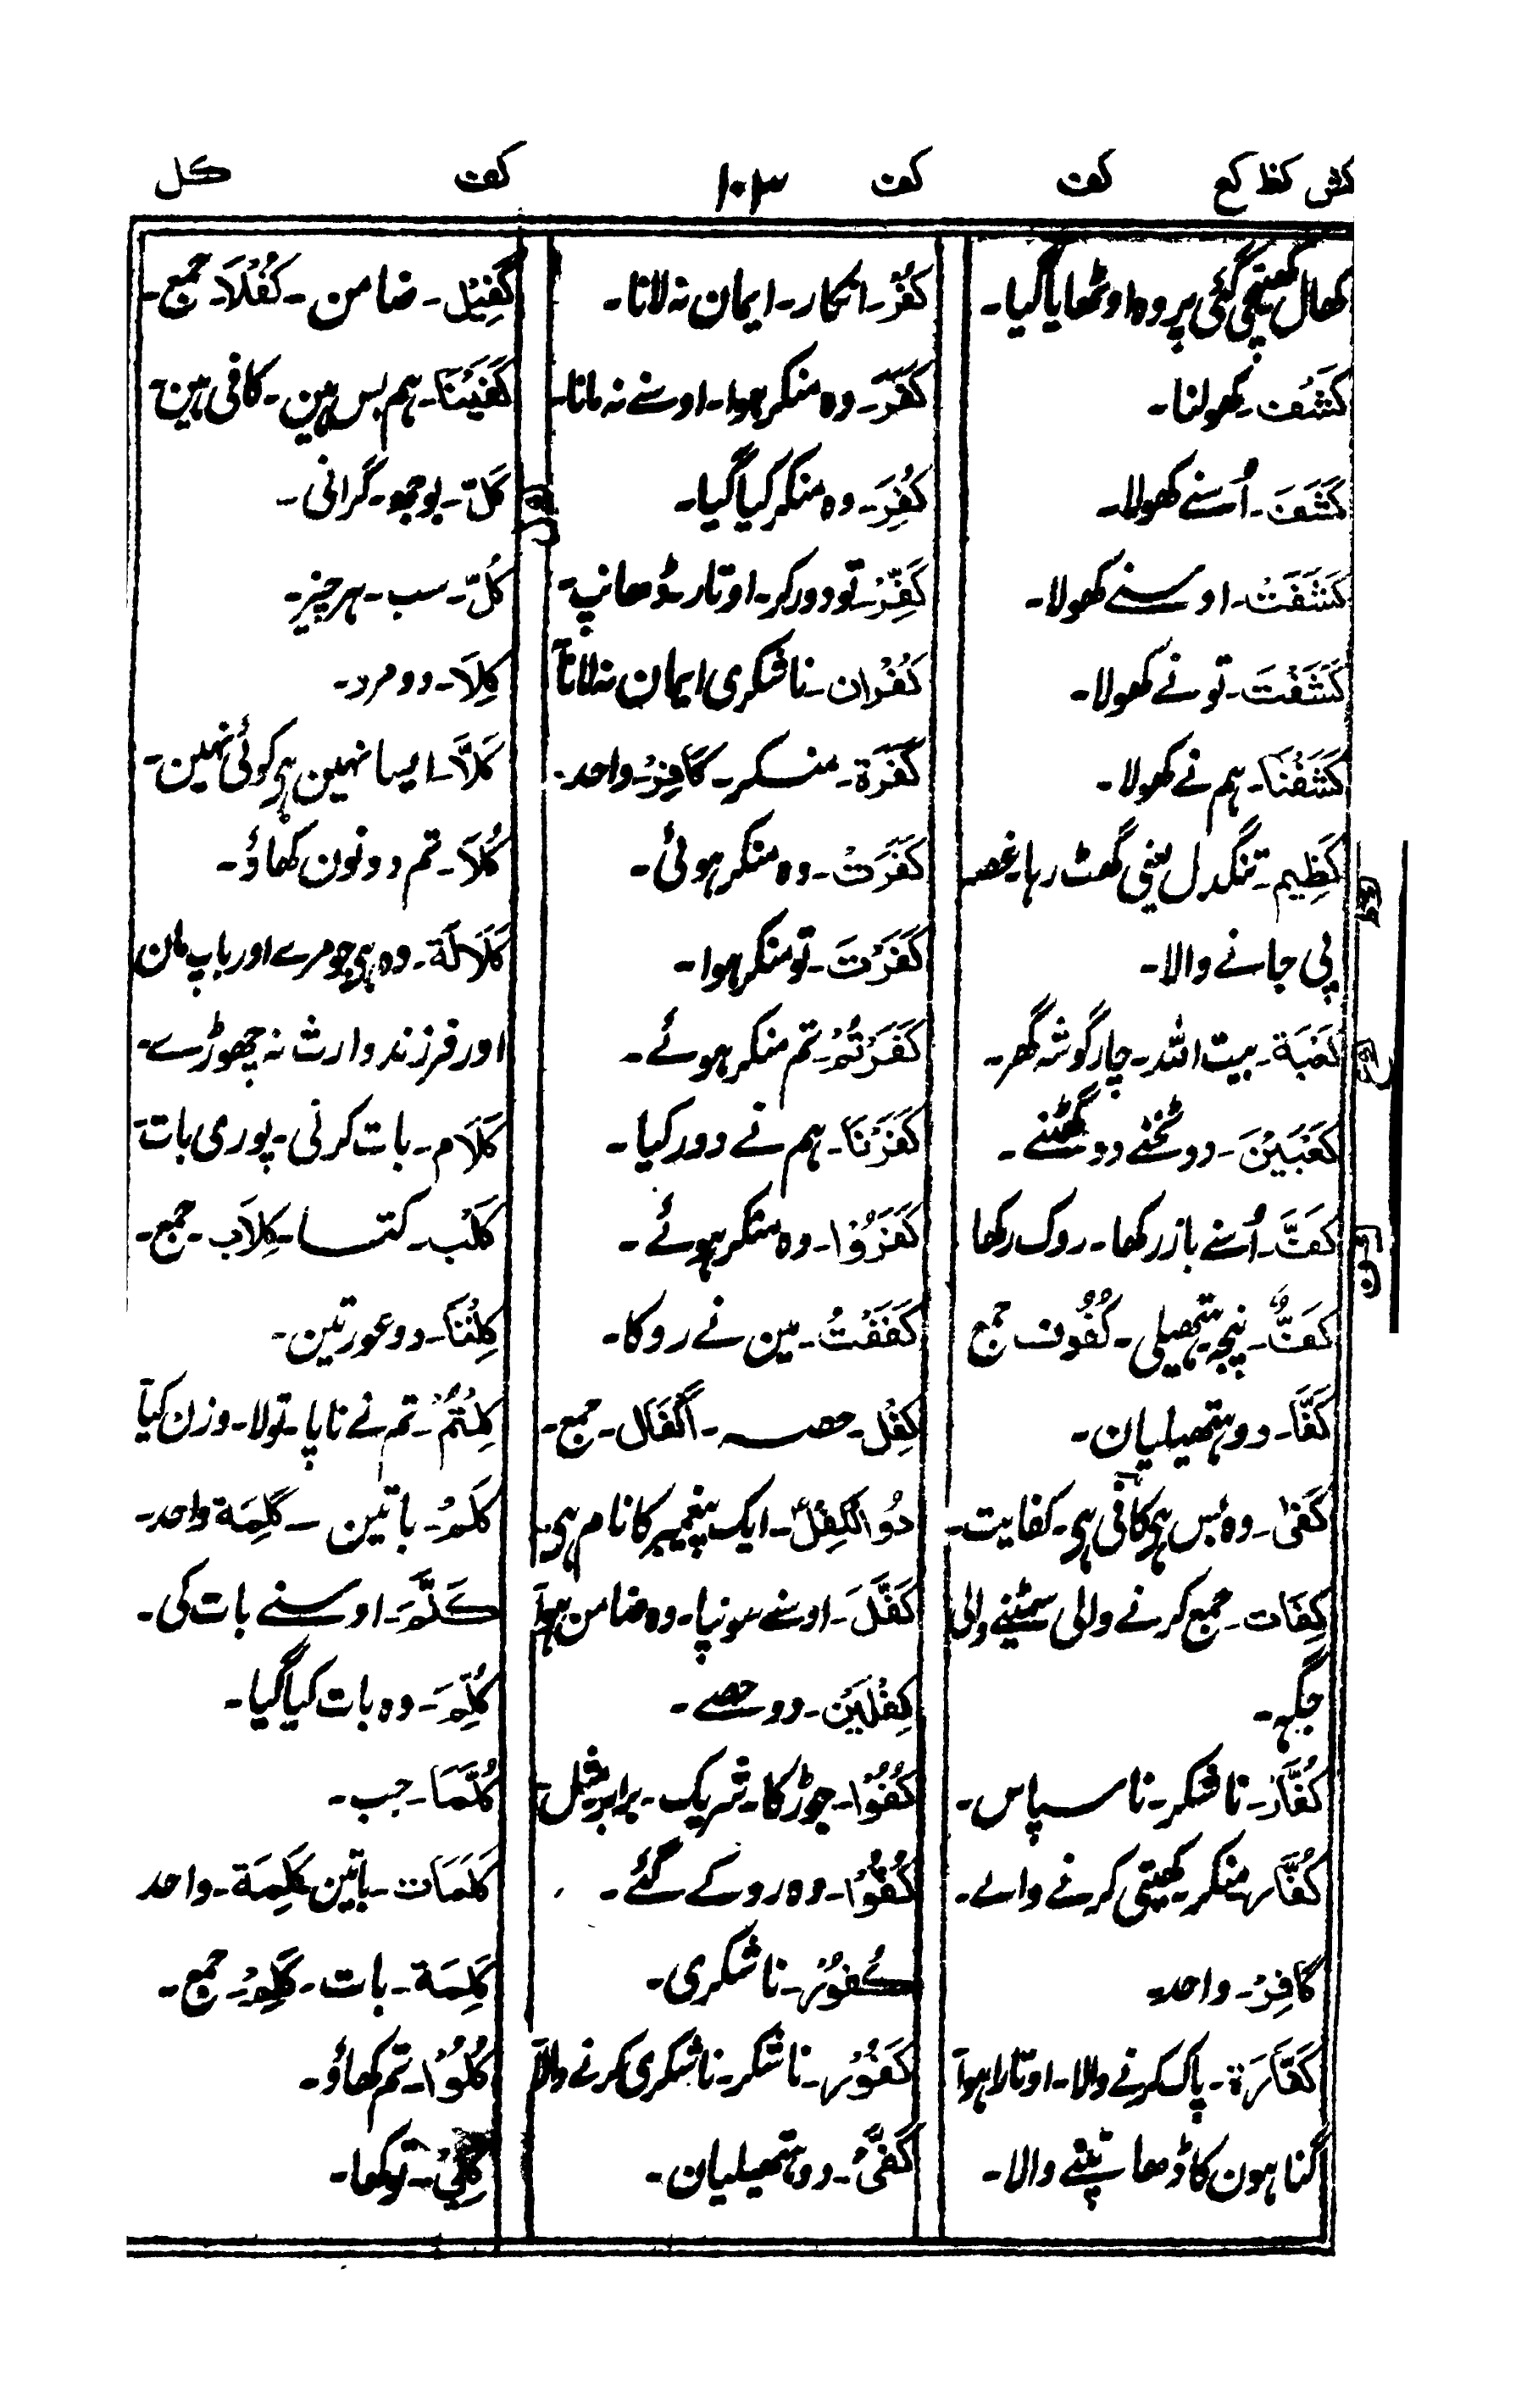 کش کظ کع کف کف ۱۰۳ کف کل
کھال کھینچی گئی پر وہ اوٹھایا گیا۔
کَشْف۔ کھولنا۔
کَشَفَ۔ اُسنے کھولا۔
کَشَفَتْ۔ اوسنے کھولا۔
کَشَفْتَ۔ تو نے کھولا۔
کَشَفْنَا۔ ہم نے کھولا۔
کظ
کَظِیم۔ تنگدل یعنی گھٹ رہا۔ غصہ
پی جانے والا۔
کع
کَعْبَة۔ بیت اللہ۔ چار گوشہ گھر۔
کَعْبَیْنَ۔ دو ٹخنے دو گھٹنے۔
کف
کَفَّ۔ اُسنے باز رکھا۔ روک رکھا
کَفٌّ۔ پنجہ ہتھیلی۔ کُفُوف جمع
کَفَّا۔ دو ہتھیلیان۔
کَفٰی۔ وہ بس ہی کافی ہی۔ کفایت۔
کِفَات۔ جمع کرنے والی سمٹینے والی
جگہ۔
کُفَّار۔ ناشکر۔ ناسپاس۔
کُفَّار۔ منکر۔ کھیتی کرنے والے۔
کَافِرْ۔ واحد۔
کَفَّارَة۔ پاک کرنے والا۔ اوتارا ہوا۔
گناہون کا ڈھانپنے والا۔
کُفْر۔ انکار۔ ایمان نہ لانا۔
کَفَرَ۔ وہ منکر ہوا۔ اوسنے نہ مانا۔
کُفِرَ۔ وہ منکر کیا گیا۔
کَفِّرْ۔ تو دور کر۔ اوتار۔ ڈھانپ۔
کُفْرَان۔ ناشکری ایمان نہ لانا۔
کَفَرَة۔ منکر۔ کَافِرْ۔ واحد۔
کَفَرَتْ۔ وہ منکر ہوئی۔
کَفَرْتَ۔ تو منکر ہوا۔
کَفَرْتُمْ۔ تم منکر ہوئے۔
کَفَّرْنَا۔ ہم نے دور کیا۔
کَفَرُوْا۔ وہ منکر ہوئے۔
کَفَفْتُ۔ مین نے روکا۔
کِفْل۔ حصہ۔ اَکْفَال۔ جمع۔
ذُوالْکِفْلْ۔ ایک پیغمبر کا نام ہی۔
کَفَّلَ۔ اوسنے سونپا۔ وہ ضامن ہوا۔
کِفْلَیْن۔ دو حصے۔
کُفُوًا۔ جوڑ کا۔ شریک۔ برابر مثل۔
کُفُّوْا۔ وہ روکے گئے۔
کُفُوْر۔ ناشکری۔
کَفُوْر۔ ناشکر۔ ناشکری کرنے والا۔
کَفَّیْ۔ دو ہتھیلیان۔
کَفِیْل۔ ضامن۔ کُفَلَا۔ جمع۔
کَفَیْنَا۔ ہم بس ہین۔ کافی ہین۔
کل
کَلّ۔ بوجھ۔ گرانی۔
کُلّ۔ سب۔ ہر چیز۔
کِلَا۔ دو مرد۔
کَلَّا۔ ایسا نہین ہی کوئی نہین۔
کُلَا۔ تم دونون کھاؤ۔
کَلَالَة۔ وہ ہی جو مرے اور باپ مان
اور فرزند وارث نہ چھوڑے۔
کَلَام۔ بات کرنی۔ پوری بات۔
کَلْب۔ کتا۔ کِلَاب۔ جمع۔
کِلْتَا۔ دو عورتین۔
کِلْتُمْ۔ تم نے ناپا۔ تولا۔ وزن کیا۔
کَلِمْ۔ باتین۔ کَلِمَة واحد۔
کَلَّمَ۔ اوسنے بات کی۔
کُلِّمَ۔ وہ بات کیا گیا۔
کُلَّمَا۔ جب۔
کَلِمَات۔ باتین کَلِمَة۔ واحد
کَلِمَة۔ بات۔ کَلِمْ۔ جمع۔
کُلُوْا۔ تم کھاؤ۔
کُلِیْ۔ تو کھا۔